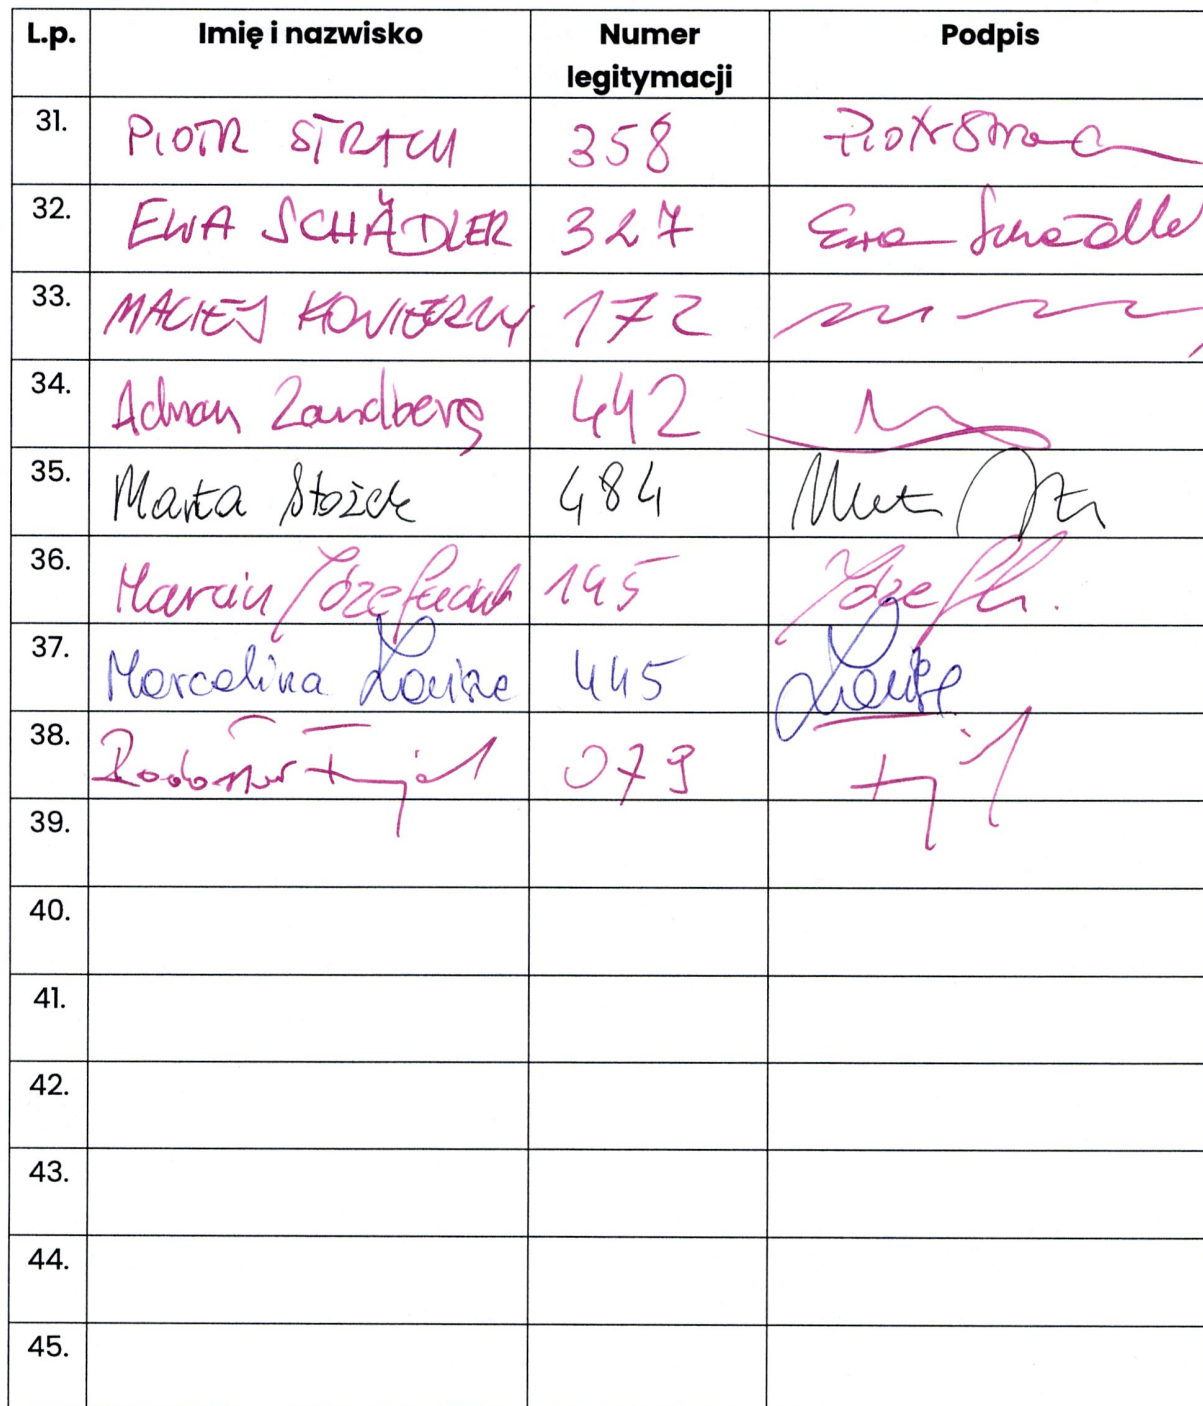 L.p. Imię i nazwisko Numer legitymacji Podpis
31. PIOTR STRACH 358 Piotr Strach
32. EWA SCHÄDLER 327 Ewa Schädler
33. MACIEJ KONIECZNY 172
34. Adrian Zandberg 442
35. Marta Stożek 484
36. Marcin Józefaciuk 145
37. Marcelina Zawisza 445 Zawisza
38. 079
39.
40.
41.
42.
43.
44.
45.